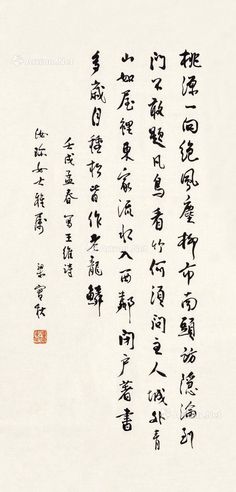 桃源一向絕風塵柳市南頭訪隱淪到
門不敢題凡鳥看竹何須問主人城外青
山如屋裡東家流水入西鄰閉戶著書
多歲月種松皆作老龍鱗
壬戌孟春 寫王維詩
女士雅屬
梁實秋